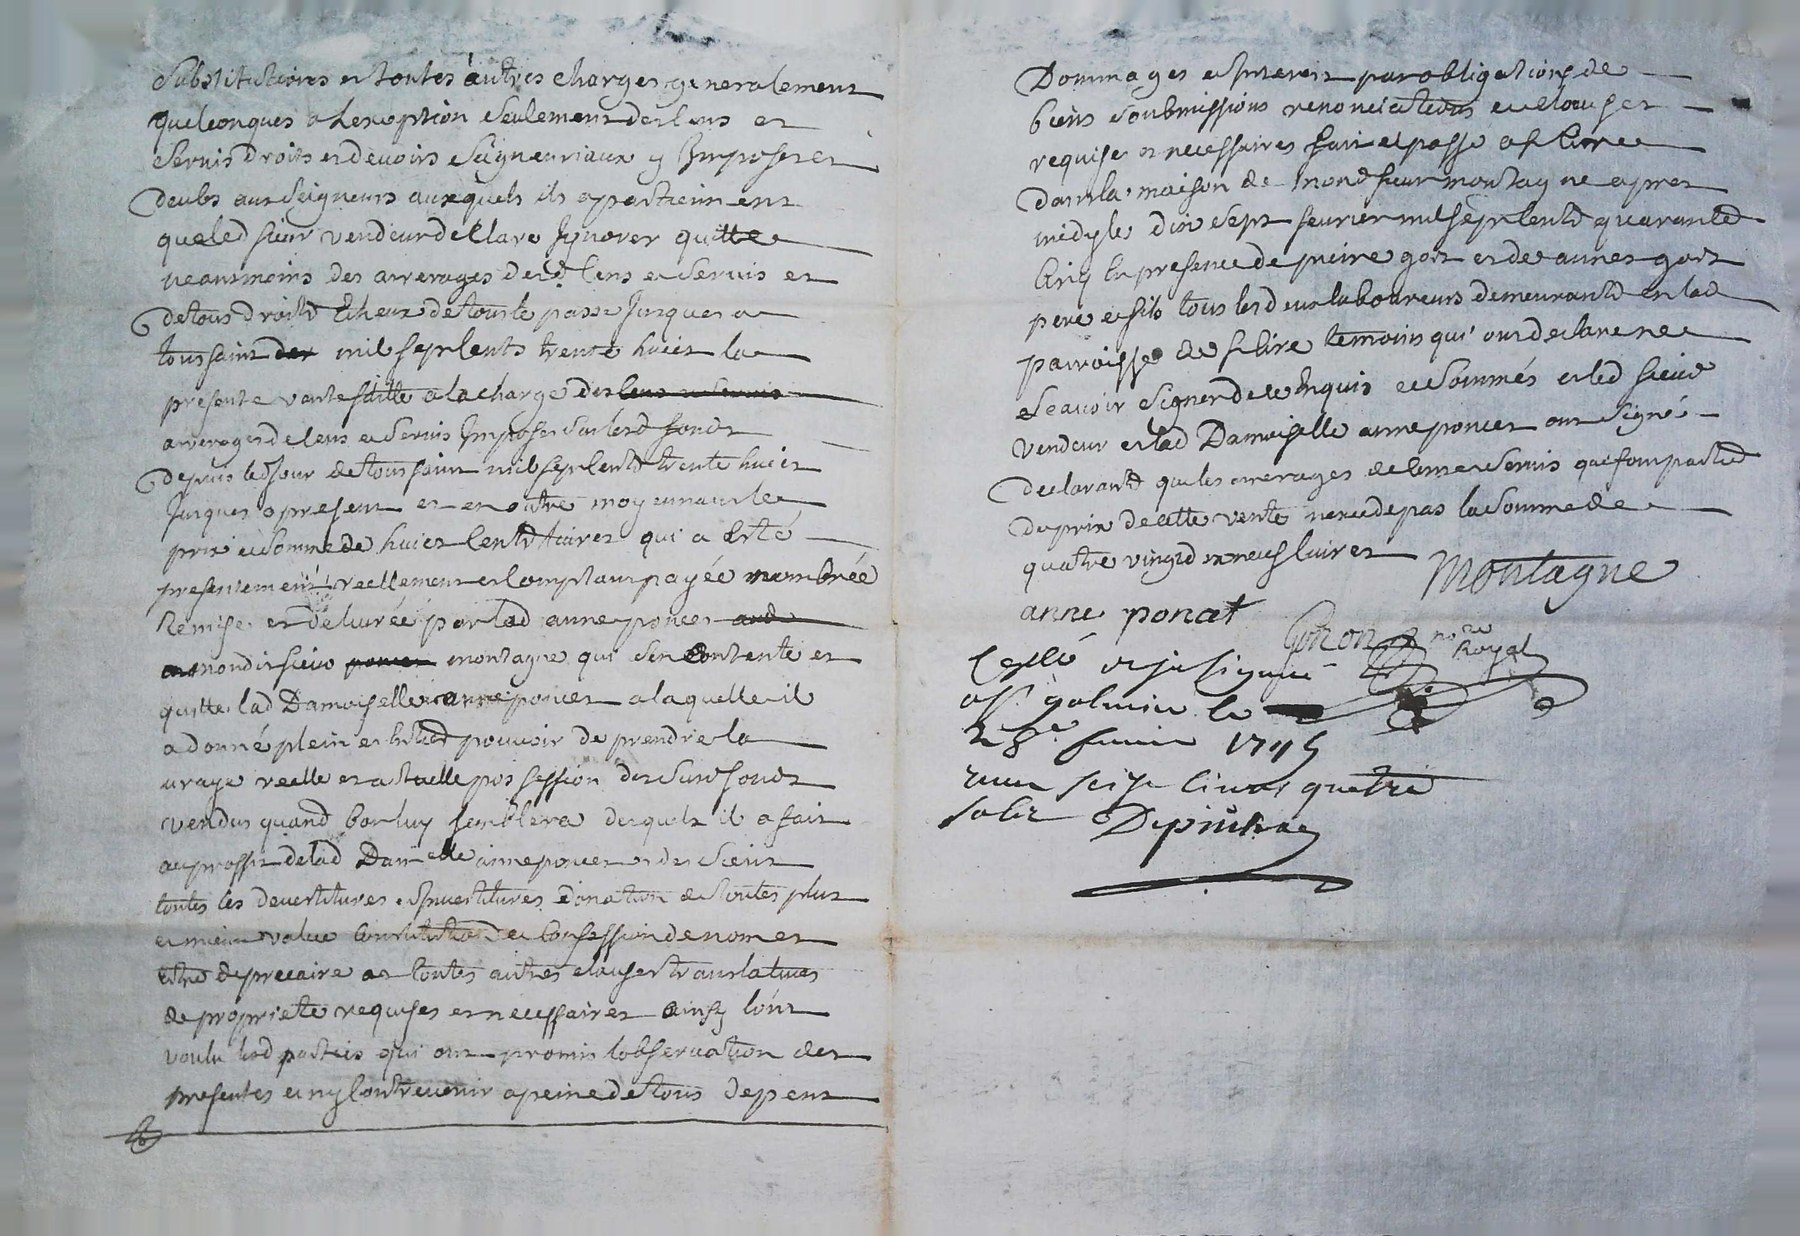 substitutions et toutes autres charges generalement
quelconques a lexception seulement des cens et
servis droits et devoirs seigneuriaux y Imposés et
deubs aux seigneurs auxquels ils apartiennent
que led sieur vendeur declare Ignorer quitte
neantmoins des arrerages desd cens et servis et
de tous droits Echeux de tout le passé Jusques a
toussaint mil sept cents trente huict la
presente vente faitte a la charge des cens et servis
arrerages de cens et servis Imposés sur lesd fonds
depuis led jour de toussaint mil sept cents trente huict
Jusques a present et en outre moyennant le
prix et somme de huict cents livres qui a esté
presentement reellement et comptant payée nombrée
Remise et délivrée par lad anne poncet
mondit sieur montagne qui sen contente et
quitte lad Damoiselle anne poncet a laquelle il
a donné plein et pouvoir de prendre la
vraye reelle et actuelle possession des susd fonds
vendus quand bon luy semblera desquels il a fait
au proffit de lad Damelle anne poncet et des siens
toutes les devestitures Investitures donation de toutes plus
et mieux value constitution et confession de nom et
titre de precaire et toutes autres clauses translatives
de proprieté requises et necessaires ainsy lont
voulu lesd parties qui ont promis lobservation des
presentes et ny contrevenir a peine de tous depens
Dommages et Interets par obligations de
biens soubmissions renonciations et clauses
requises et necessaires fait et passé a
dans la maison de mond sieur montagne apres
midy le dix sept fevrier mil sept cents quarante
cinq En presence de pierre got et de annet got
pere et fils tous les deux laboureurs demeurants en lad
parroisse de temoins qui ont declaré ne
sçavoir signer de ce Enquis et sommés et led sieur
vendeur et lad Damoiselle anne poncet ont signé
declarants que les arrerages de cens et servis qui font partie
du prix de cette vente nexcede pas la somme de
quatre vingt dix neuf livres
Montagne
anne ponat
Gonon nore Royal
Cellé et Insinué
a St galmier le
28e fevrier 1745
receu seize livres quatre
sols